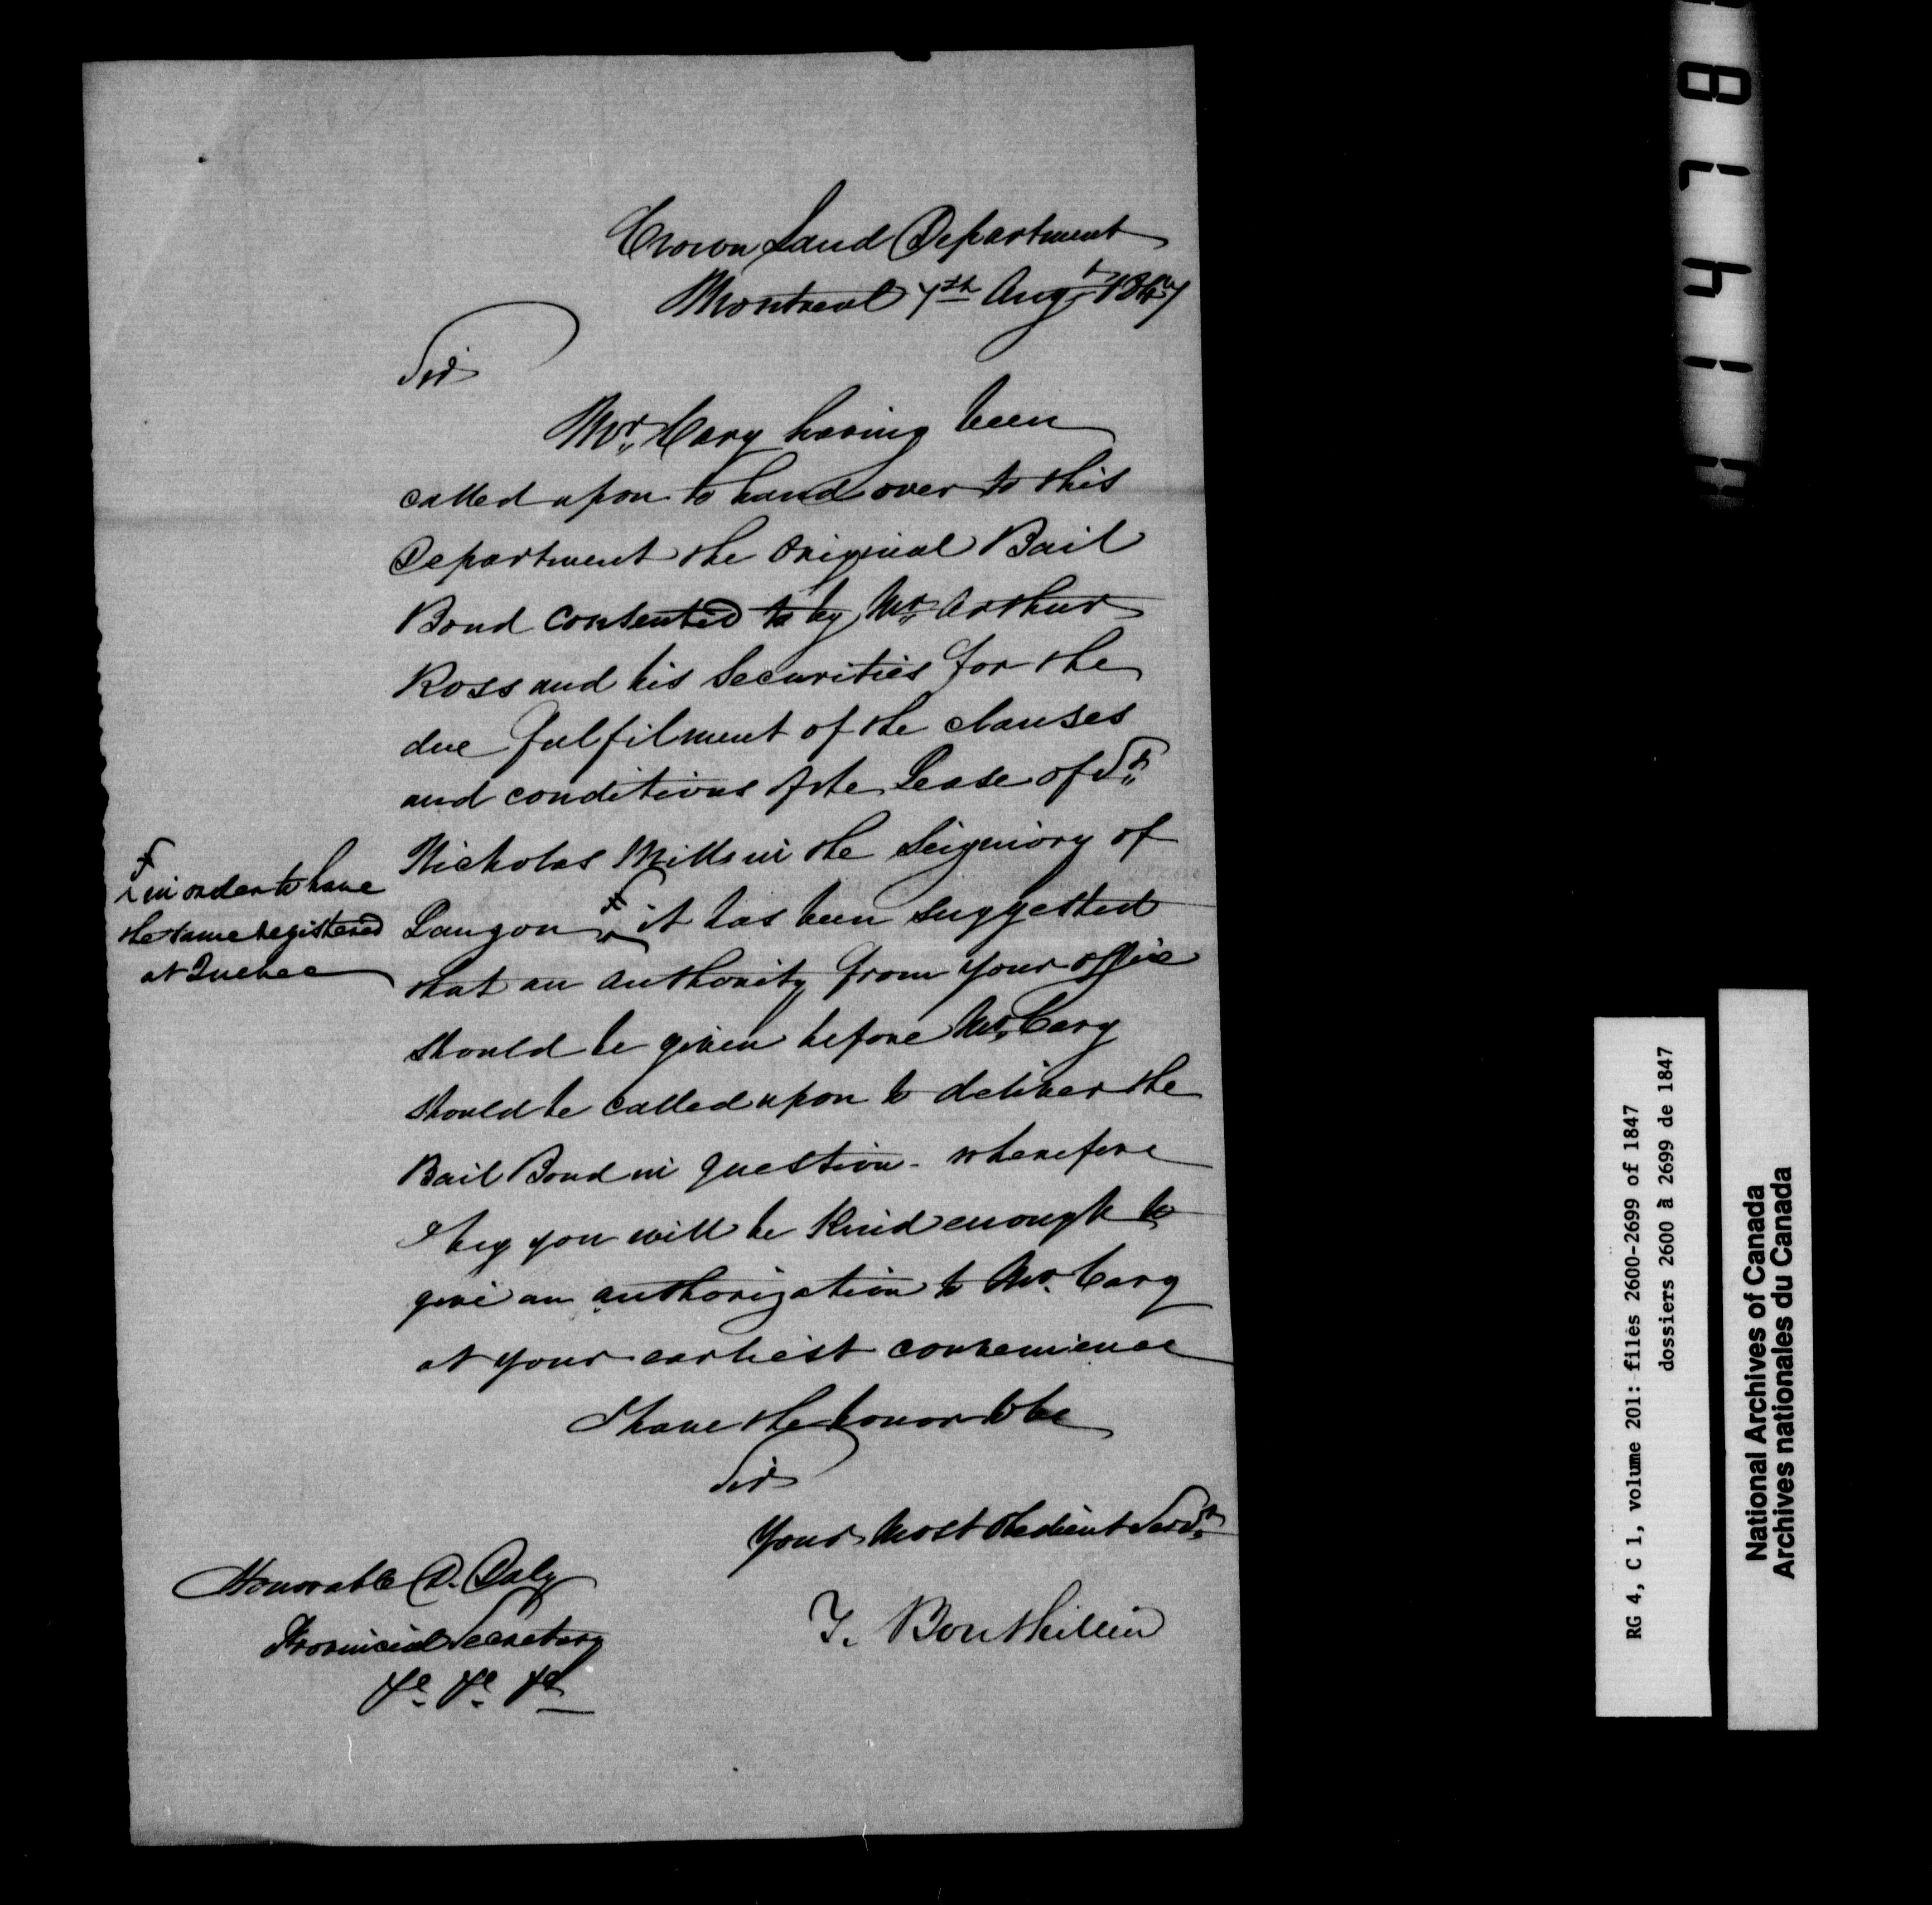 Crown Land Department
Montreal 7th Augt 1847
Sir
Mr. Cary having been
called upon to hand over to this
Department the Original Bail
Bond consented to by Mr. Arthur
Ross and his Securities for the
due fulfilment of the clauses
and conditions of the Lease of St.
Nicholas Mills in the Seigniory of
Lauzon ꝉ it has been suggested
that an authority from your office
should be given before Mr. Cary
should be called upon to deliver the
Bail Bond in question - wherefore
I beg you will be kind enough to
give an authorization to Mr. Cary
at your earliest convenience
I have the honor to be
Sir
Your Most Obedient Servt.
T. Bouthillier
ꝉ in order to have
the same registered
at Quebec
Honorable D. Daly
Provincial Secretary
&c &c &c
87141
RG 4, C 1, volume 201: files 2600-2699 of 1847
dossiers 2600 à 2699 de 1847
National Archives of Canada
Archives nationales du Canada